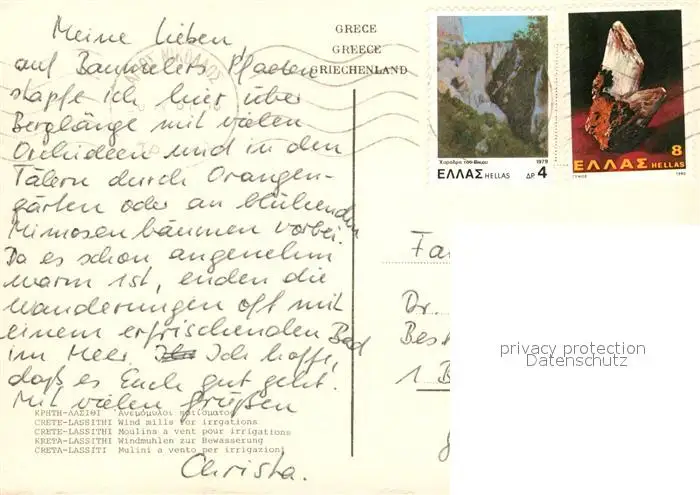 Meine Lieben,
auf Baumelers Pfaden
stapfe ich hier über
Berghänge mit vielen
Orchideen und in den
Tälern durch Orangen-
gärten oder an blühenden
Mimosenbäumen vorbei.
Da es schon angenehm
warm ist, enden die
Wanderungen oft mit
einem erfrischenden Bad
im Meer. Ich hoffe,
daß es Euch gut geht.
Mit vielen Grüßen
Christa.
ΚΡΗΤΗ-ΛΑΣΙΘΙ Ἀνεμόμυλοι ποτίσματος
CRETE-LASSITHI Wind mills for irrgations
CRETE-LASSITHI Moulins a vent pour irrigations
KRETA-LASSITHI Windmuhlen zur Bewasserung
CRETA-LASSITI Mulini a vento per irrigazioni
GRECE
GREECE
GRIECHENLAND
Χαράδρα του Βίκου 1979
ΕΛΛΑΣ HELLAS ΔΡ 4
8
ΕΛΛΑΣ HELLAS
ΓΥΨΟΣ 1980
Dr.
1
privacy protection
Datenschutz